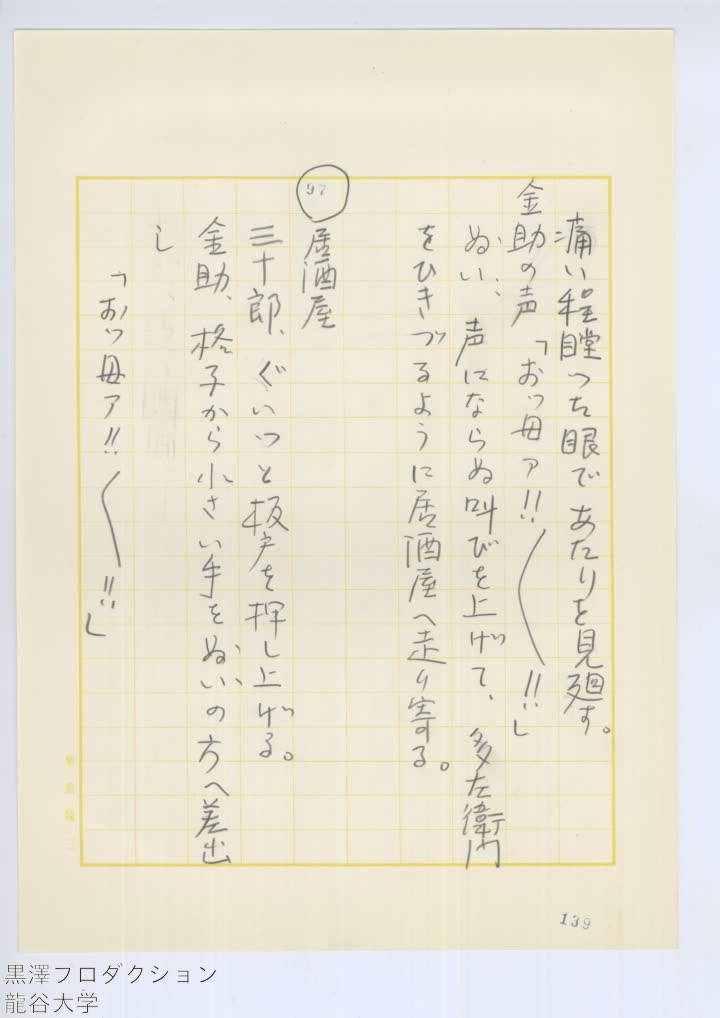 痛い程瞠った眼であたりを見廻す。
金助の声「おッ母ァ!!〱!!」
ぬい、声にならぬ叫びを上げて、多左衛門
をひきづるように居酒屋へ走り寄る。
97
居酒屋
三十郎、ぐいっと板戸を押し上げる。
金助、格子から小さい手をぬいの方へ差出
し
「おッ母ァ!!〱!!」
139
黒澤プロダクション
龍谷大学